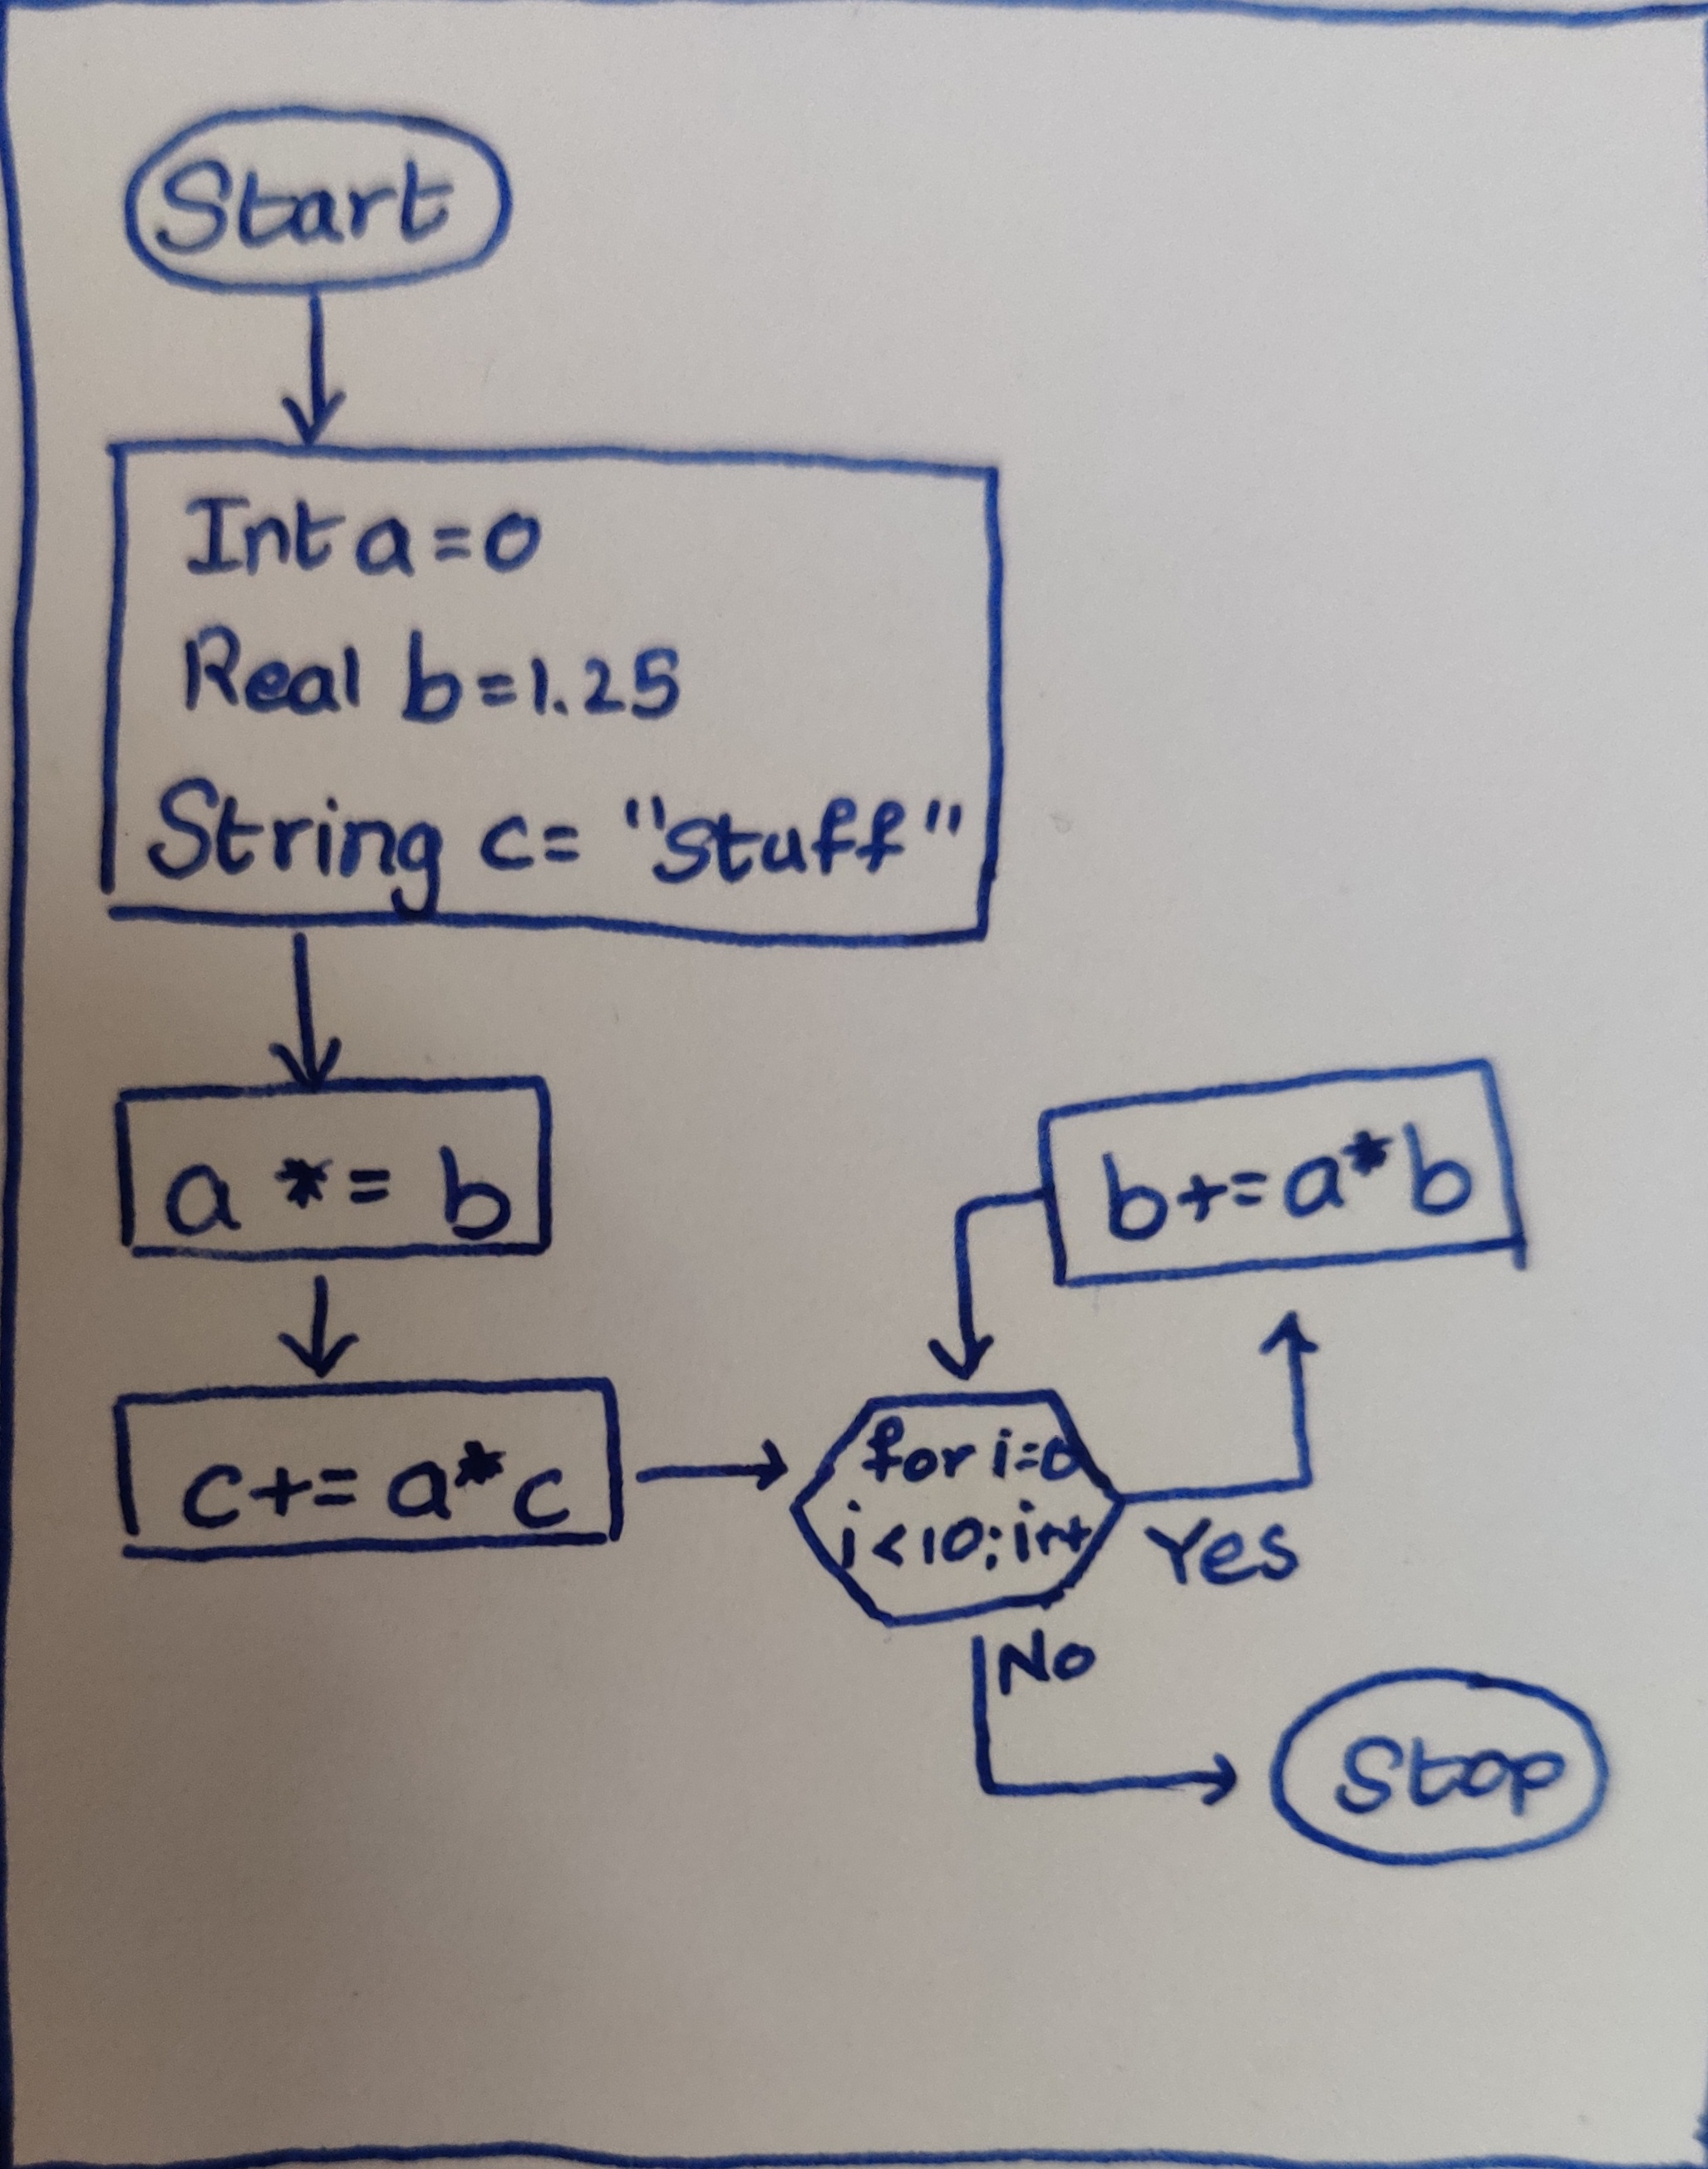 Start
Int a=0
Real b=1.25
String c= "stuff"
a *= b
c+= a*c
for i=0
i<10;i++
Yes
b+=a*b
No
Stop